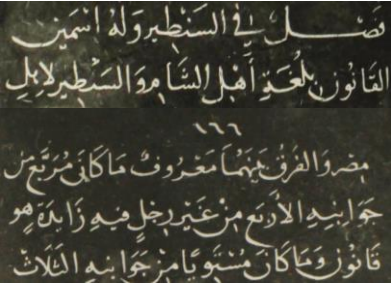 فصل في السنطير وله اسمين
القانون بلغة أهل الشام والسنطير لاهل
١٦٦
مصر والفرق بينهما معروف ما كان مربع من
جوانبه الأربع من غير رجل فيه زايدة هو
قانون وما كان مستويا من جوانبه الثلاث